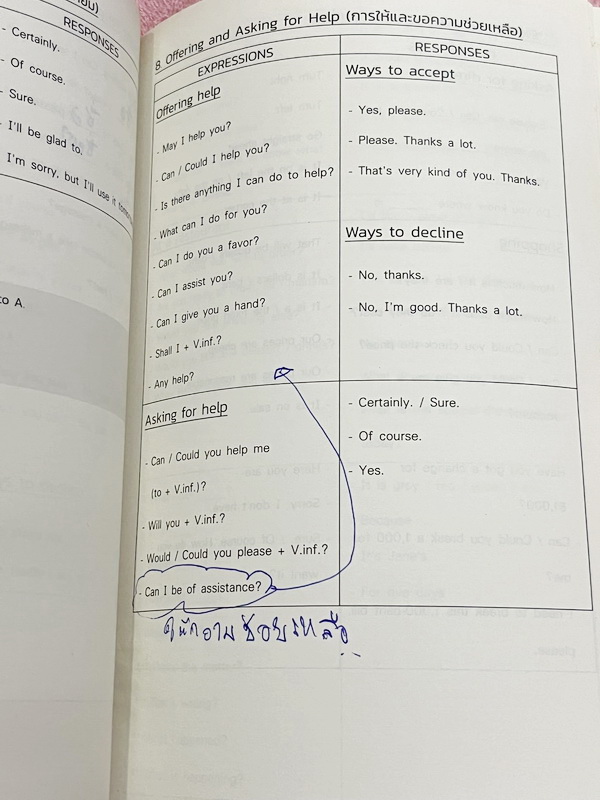 RESPONSES
- Certainly.
- Of course.
- Sure.
- I'll be glad to.
I'm sorry, but I'll use it
to A.
8. Offering and Asking for Help (การให้และขอความช่วยเหลือ)
EXPRESSIONS
Offering help
- May I help you?
- Can / Could I help you?
- Is there anything I can do to help?
- What can I do for you?
- Can I do you a favor?
- Can I assist you?
- Can I give you a hand?
- Shall I + V.inf.?
- Any help?
RESPONSES
Ways to accept
- Yes, please.
- Please. Thanks a lot.
- That's very kind of you. Thanks.
Ways to decline
- No, thanks.
- No, I'm good. Thanks a lot.
Asking for help
- Can / Could you help me
(to + V.inf.)?
- Will you + V.inf.?
- Would / Could you please + V.inf.?
- Can I be of assistance?
- Certainly. / Sure.
- Of course.
- Yes.